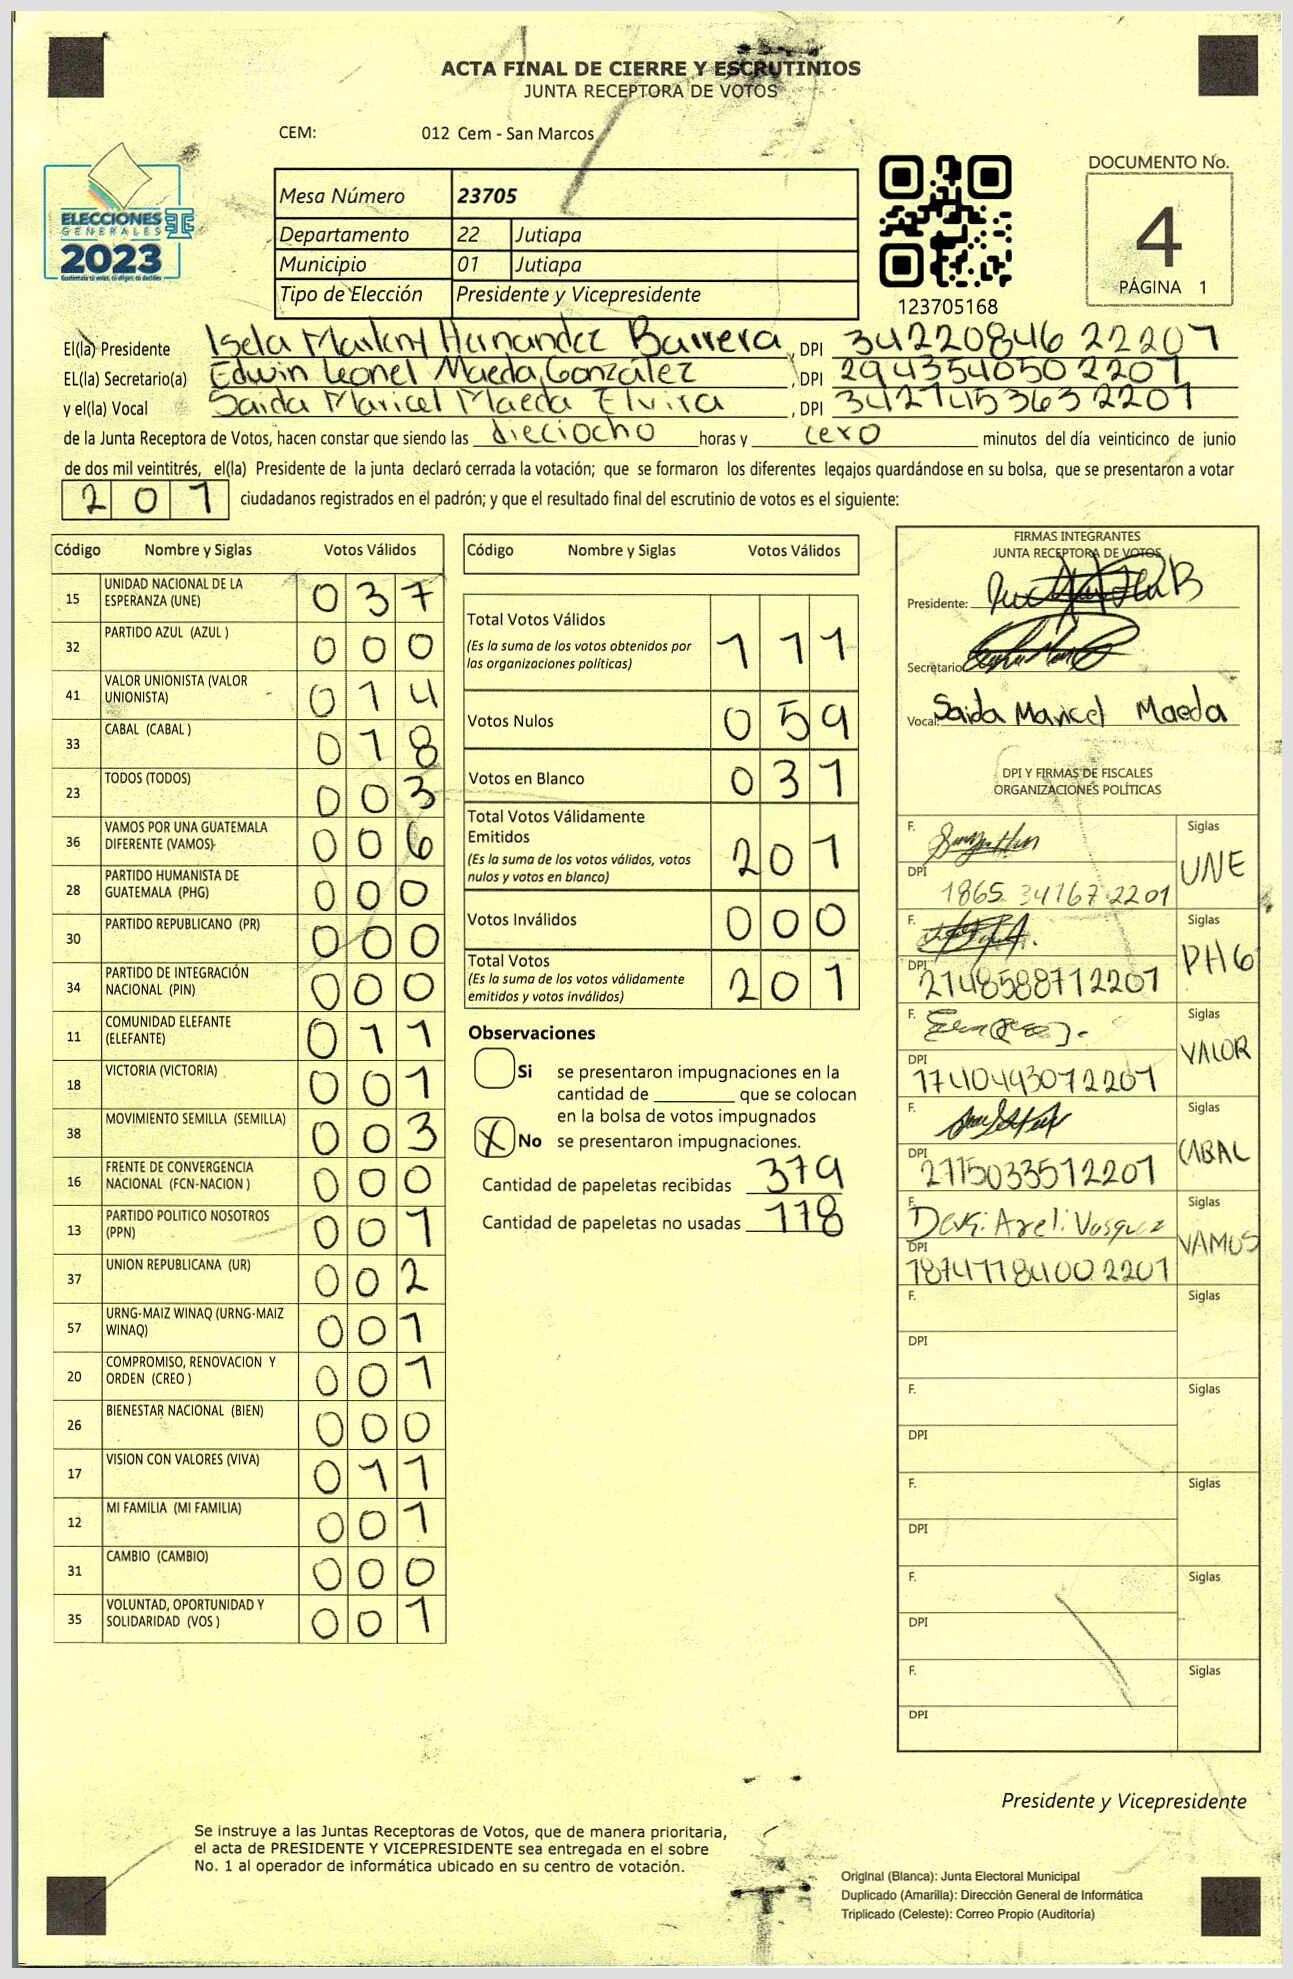 ACTA FINAL DE CIERRE Y ESCRUTINIOS
JUNTA RECEPTORA DE VOTOS
CEM: 012 Cem - San Marcos
ELECCIONES
GENERALES
2023
Mesa Número 23705
Departamento 22 Jutiapa
Municipio 01 Jutiapa
Tipo de Elección Presidente y Vicepresidente
123705168
DOCUMENTO No.
4
PÁGINA 1
El(la) Presidente Isela Marleny Hernandez Barrera, DPI 34220846 22207
EL(la) Secretario(a) Edwin Leonel Maeda González, DPI 2943540502201
y el(la) Vocal Saida Maricel Maeda Elvira, DPI 3427453632201
de la Junta Receptora de Votos, hacen constar que siendo las dieciocho horas y cero minutos del día veinticinco de junio
de dos mil veintitrés, el(la) Presidente de la junta declaró cerrada la votación; que se formaron los diferentes legajos quardándose en su bolsa, que se presentaron a votar
201 ciudadanos registrados en el padrón; y que el resultado final del escrutinio de votos es el siguiente:
Código Nombre y Siglas Votos Válidos
15 UNIDAD NACIONAL DE LA ESPERANZA (UNE) 037
32 PARTIDO AZUL (AZUL ) 000
41 VALOR UNIONISTA (VALOR UNIONISTA) 014
33 CABAL (CABAL ) 018
23 TODOS (TODOS) 003
36 VAMOS POR UNA GUATEMALA DIFERENTE (VAMOS) 006
28 PARTIDO HUMANISTA DE GUATEMALA (PHG) 000
30 PARTIDO REPUBLICANO (PR) 000
34 PARTIDO DE INTEGRACIÓN NACIONAL (PIN) 000
11 COMUNIDAD ELEFANTE (ELEFANTE) 011
18 VICTORIA (VICTORIA) 001
38 MOVIMIENTO SEMILLA (SEMILLA) 003
16 FRENTE DE CONVERGENCIA NACIONAL (FCN-NACION ) 000
13 PARTIDO POLITICO NOSOTROS (PPN) 001
37 UNION REPUBLICANA (UR) 002
57 URNG-MAIZ WINAQ (URNG-MAIZ WINAQ) 001
20 COMPROMISO, RENOVACION Y ORDEN (CREO ) 001
26 BIENESTAR NACIONAL (BIEN) 000
17 VISION CON VALORES (VIVA) 011
12 MI FAMILIA (MI FAMILIA) 001
31 CAMBIO (CAMBIO) 000
35 VOLUNTAD, OPORTUNIDAD Y SOLIDARIDAD (VOS ) 001
Código Nombre y Siglas Votos Válidos
Total Votos Válidos 111
(Es la suma de los votos obtenidos por
las organizaciones políticas)
Votos Nulos 059
Votos en Blanco 031
Total Votos Válidamente
Emitidos 201
(Es la suma de los votos válidos, votos
nulos y votos en blanco)
Votos Inválidos 000
Total Votos 201
(Es la suma de los votos válidamente
emitidos y votos inválidos)
Observaciones
Si se presentaron impugnaciones en la
cantidad de ________ que se colocan
en la bolsa de votos impugnados
X No se presentaron impugnaciones.
Cantidad de papeletas recibidas 379
Cantidad de papeletas no usadas 178
FIRMAS INTEGRANTES
JUNTA RECEPTORA DE VOTOS
Presidente:
Secretario
Vocal: Saida Maricel Maeda
DPI Y FIRMAS DE FISCALES
ORGANIZACIONES POLÍTICAS
F. Siglas UNE
DPI 1865 34167 2201
F. Siglas PHG
DPI 2148588712201
F. Siglas VALOR
DPI 1740493072201
F. Siglas CABAL
DPI 2715033512201
F. Devi Areli Vasquez Siglas VAMOS
DPI 1874778400 2201
F. Siglas
DPI
F. Siglas
DPI
F. Siglas
DPI
F. Siglas
DPI
F. Siglas
DPI
Presidente y Vicepresidente
Se instruye a las Juntas Receptoras de Votos, que de manera prioritaria,
el acta de PRESIDENTE Y VICEPRESIDENTE sea entregada en el sobre
No. 1 al operador de informática ubicado en su centro de votación.
Original (Blanca): Junta Electoral Municipal
Duplicado (Amarilla): Dirección General de Informática
Triplicado (Celeste): Correo Propio (Auditoría)